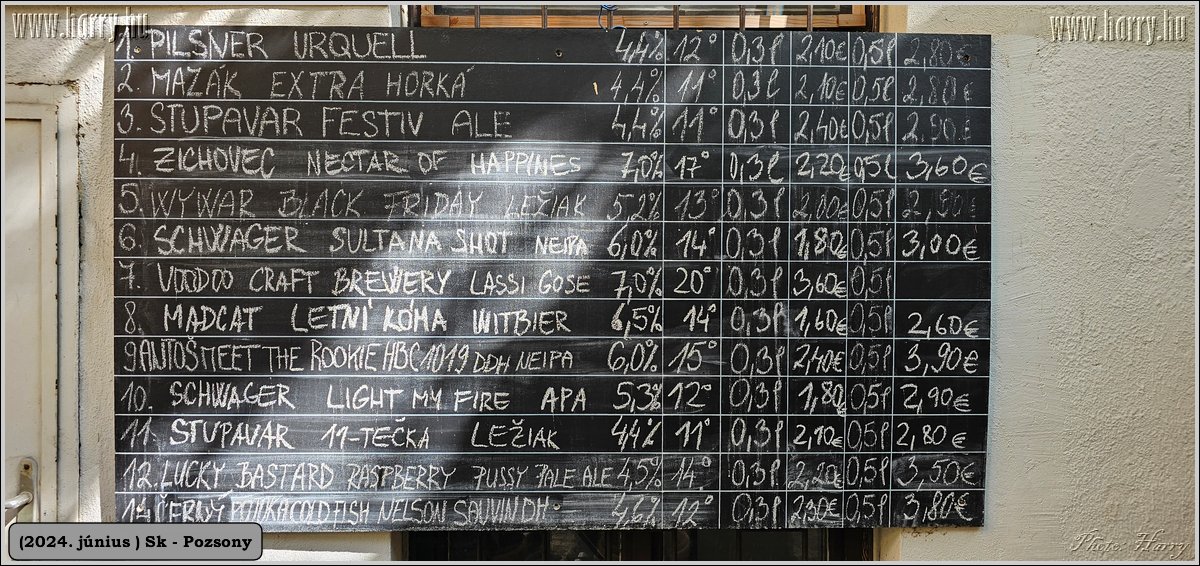 www.horry.hu www.horry.hu
1. PILSNER URQUELL 4,4% 12° 0,3l 2,10€ 0,5l 2,80€
2. MAZÁK EXTRA HORKÁ 4,4% 11° 0,3l 2,10€ 0,5l 2,80€
3. STUPAVAR FESTIV ALE 4,4% 11° 0,3l 2,40€ 0,5l 2,90€
4. ZICHOVEC NECTAR OF HAPPINES 7,0% 17° 0,3l 2,20€ 0,5l 3,60€
5. WYWAR BLACK FRIDAY LEŽIAK 5,2% 13° 0,3l 2,00€ 0,5l
6. SCHWAGER SULTANA SHOT NEIPA 6,0% 14° 0,3l 1,80€ 0,5l 3,00€
7. VOODOO CRAFT BREWERY LASSI GOSE 7,0% 20° 0,3l 3,60€ 0,5l
8. MADCAT LETNÍ KÓMA WITBIER 6,5% 14° 0,3l 1,60€ 0,5l 2,60€
9 ANTOŠ MEET THE ROOKIE HBC 1019 DDH NEIPA 6,0% 15° 0,3l 2,40€ 0,5l 3,90€
10. SCHWAGER LIGHT MY FIRE APA 5,3% 12° 0,3l 1,80€ 0,5l 2,90€
11. STUPAVAR 11-TEČKA LEŽIAK 4,4% 11° 0,3l 2,10€ 0,5l 2,80€
12. LUCKY BASTARD RASPBERRY PUSSY PALE ALE 4,5% 14° 0,3l 2,20€ 0,5l 3,50€
14. ČERNÝ COLDFISH NELSON SAUVIN DH 4,6% 12° 0,3l 2,30€ 0,5l 3,80€
(2024. június ) Sk - Pozsony
Photo: Harry